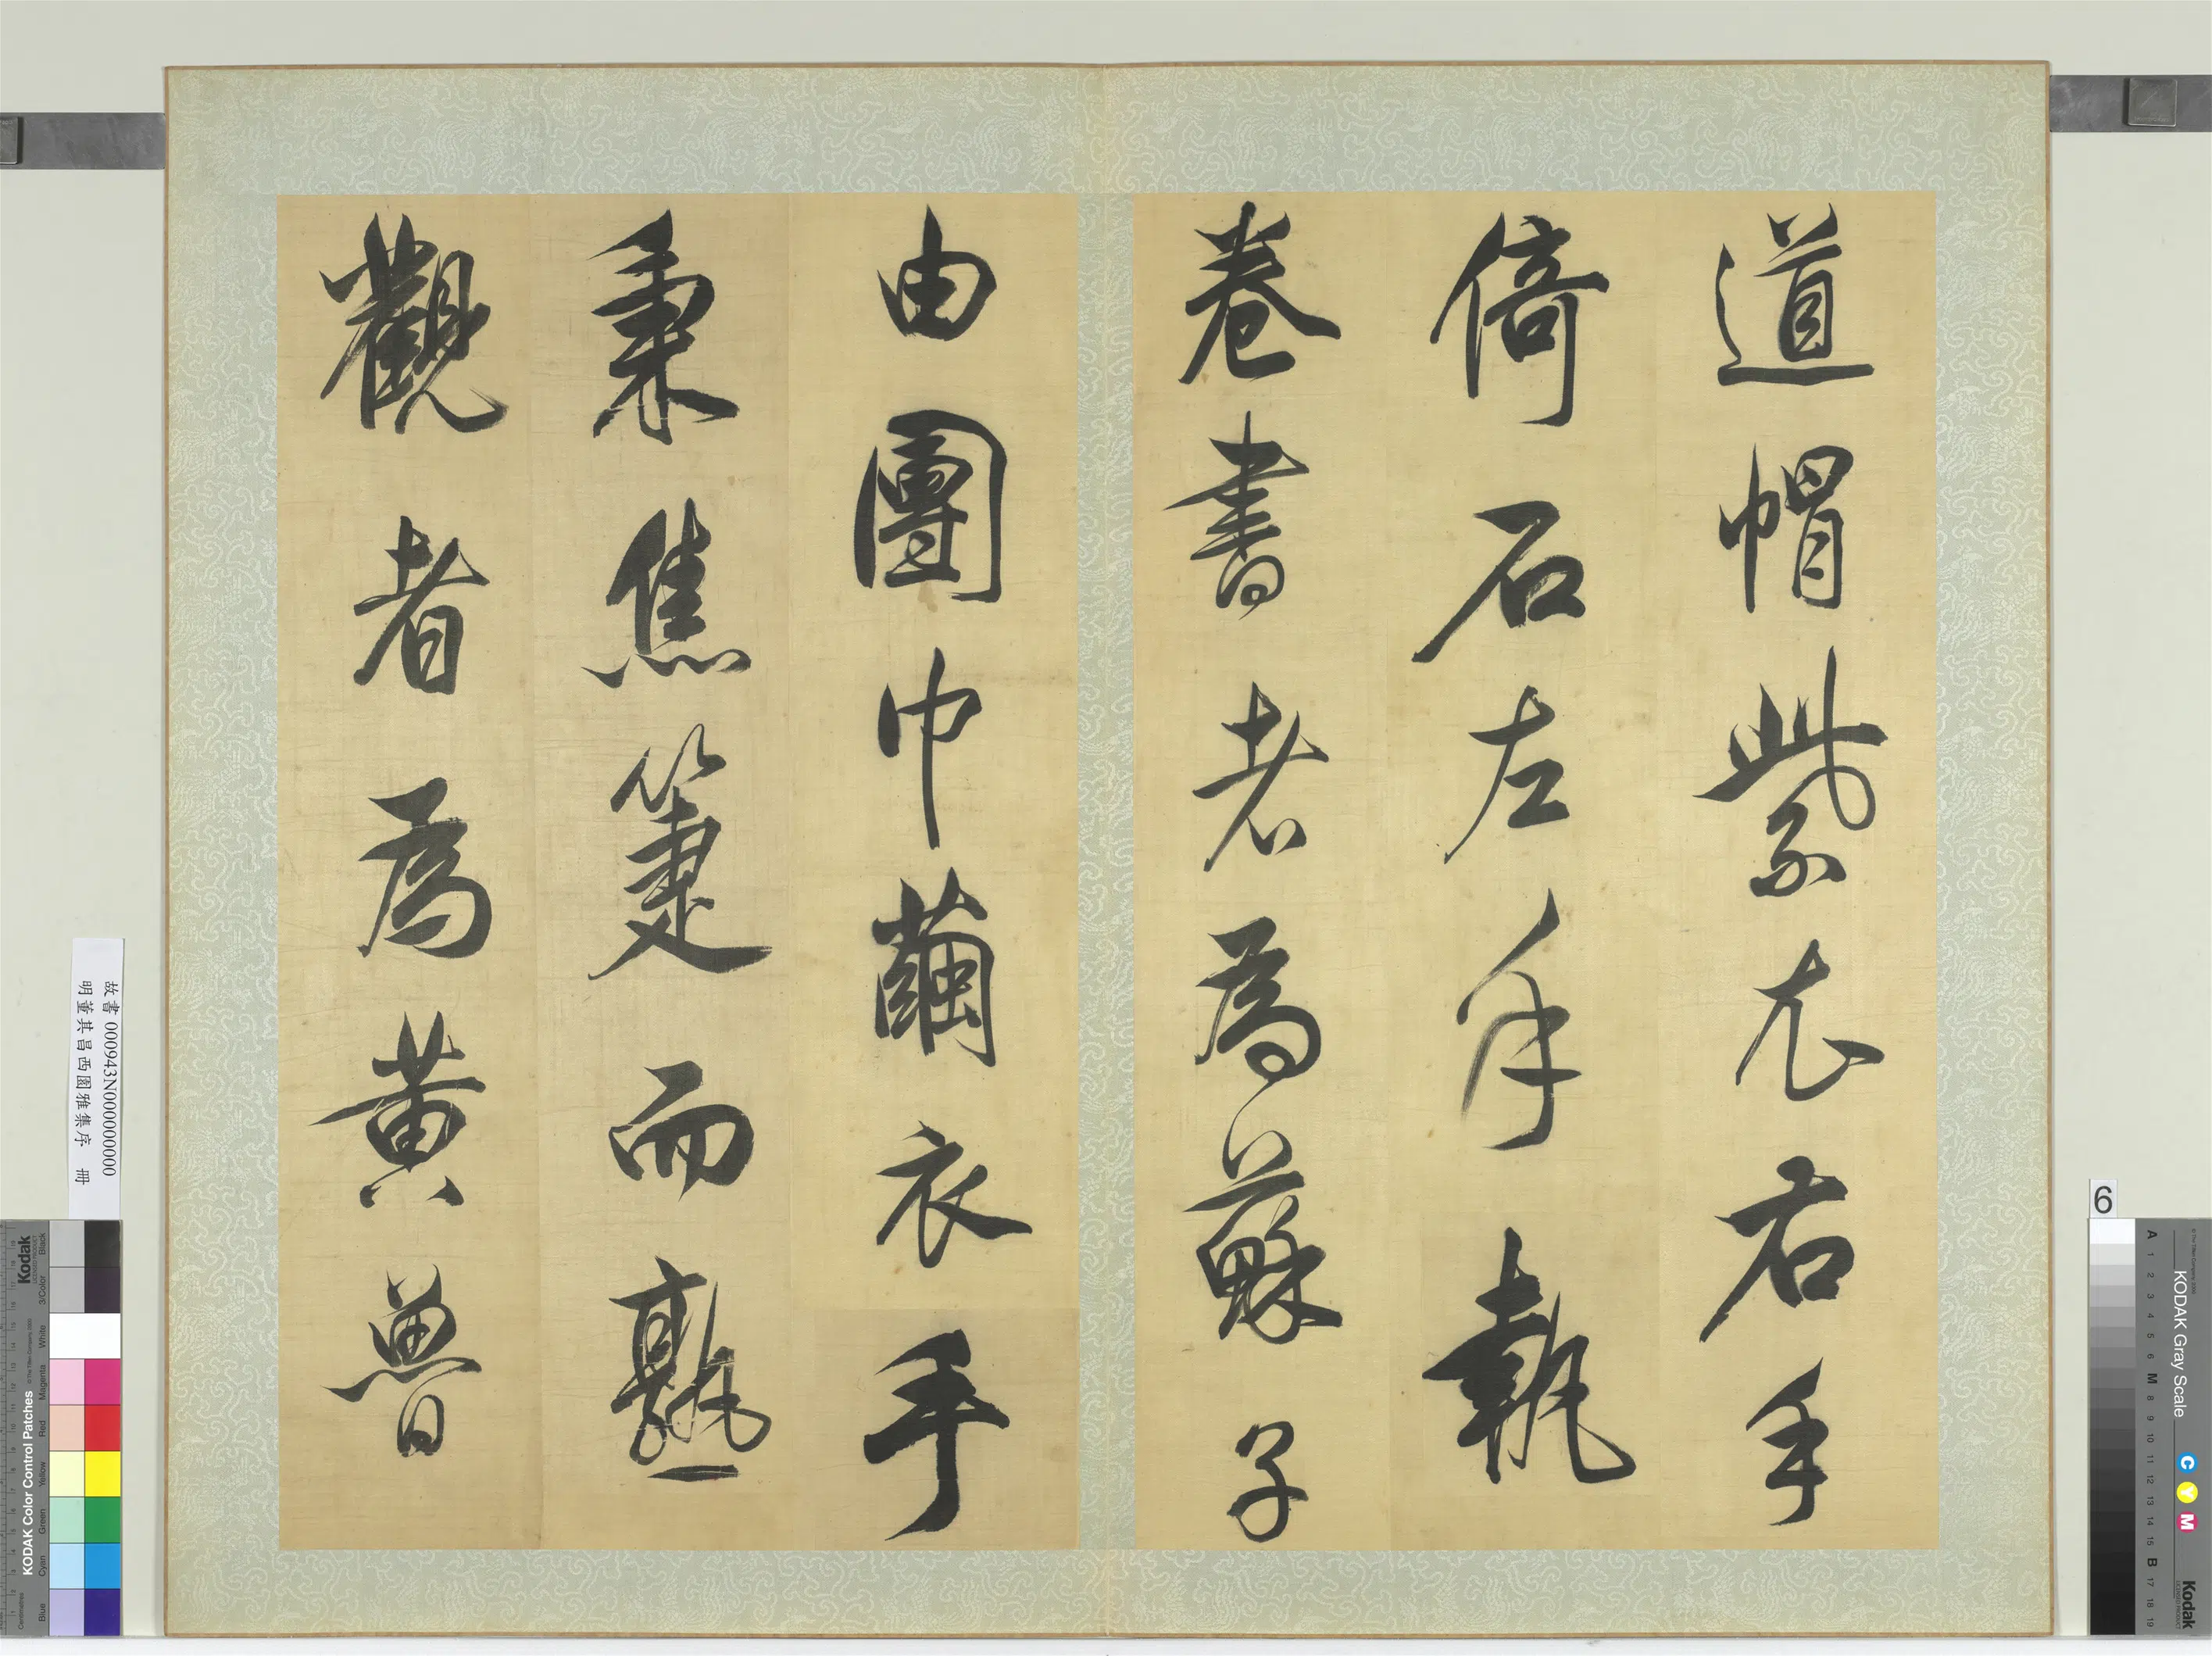 道帽紫衣右手
倚石左手執
卷書者為蘇子
由團巾繭衣手
秉焦箑而熟
觀者為黃魯
故書 000943N000000000
明董其昌西園雅集序 冊
6
KODAK Gray Scale
C Y M
Kodak
A 1 2 3 4 5 6 M 8 9 10 11 12 13 14 15 B 17 18 19
Kodak
KODAK Color Control Patches
Blue Cyan Green Yellow Red Magenta White 3/Color Black
Centimetres